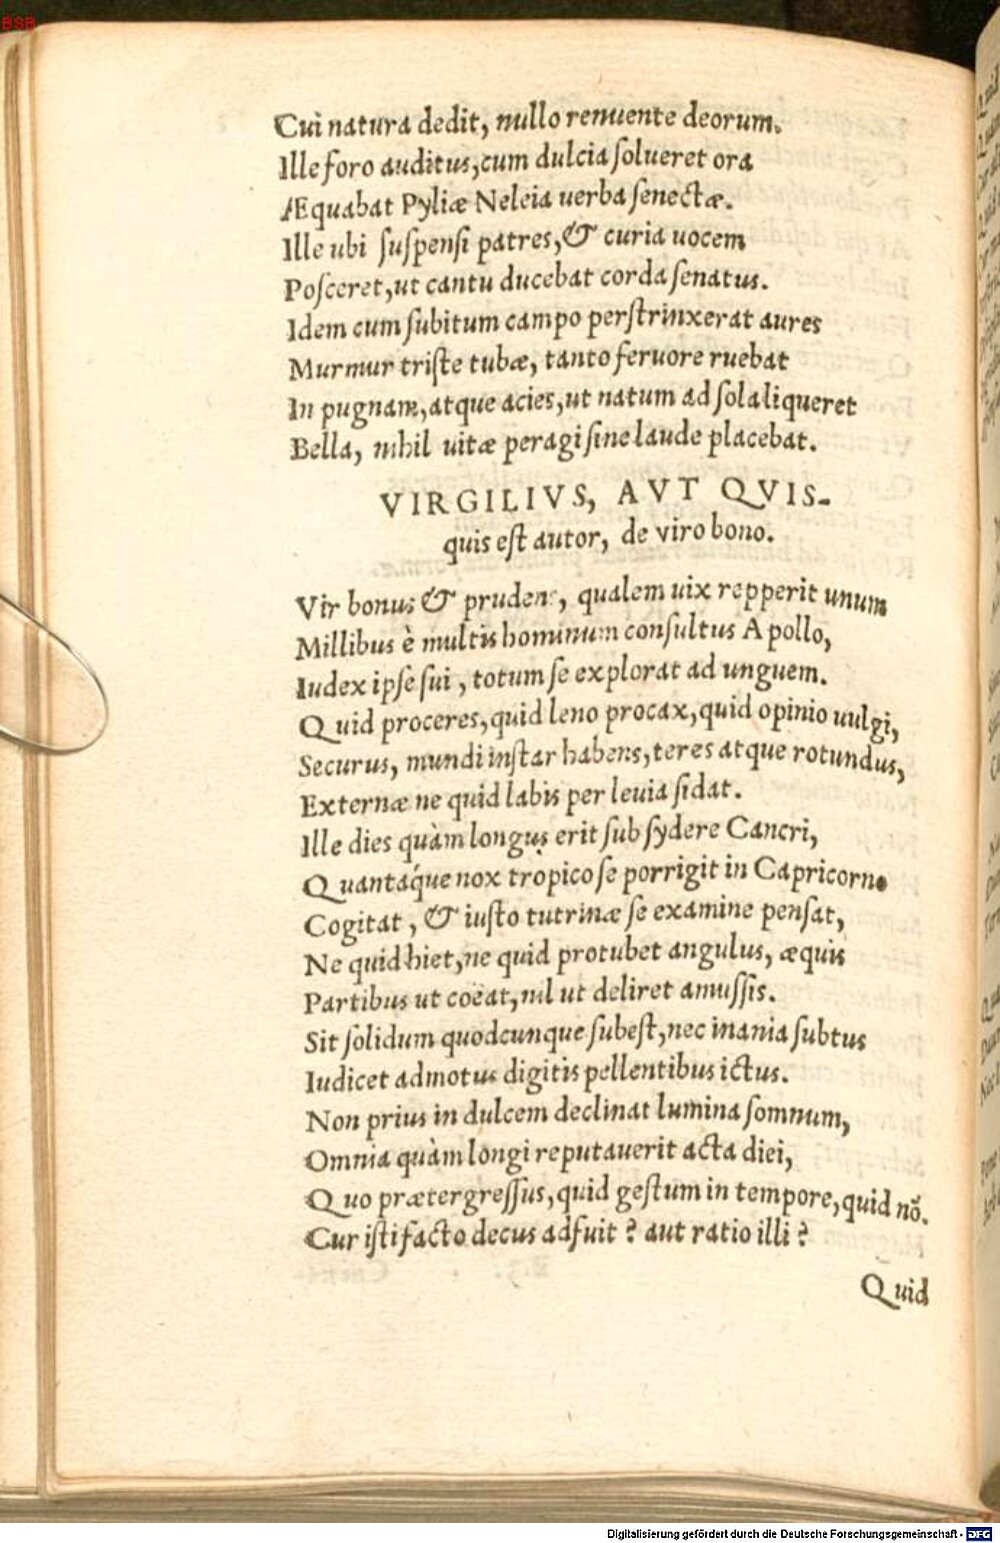 BSB
Cui natura dedit, nullo renuente deorum.
Ille foro auditus, cum dulcia solueret ora
AEquabat Pyliæ Neleia uerba senectæ.
Ille ubi suspensi patres, & curia uocem
Posceret, ut cantu ducebat corda senatus.
Idem cum subitum campo perstrinxerat aures
Murmur triste tubæ, tanto feruore ruebat
In pugnam, atque acies, ut natum ad sola liqueret
Bella, nihil uitæ peragi sine laude placebat.
VIRGILIVS, AVT QVIS-
quis est autor, de viro bono.
Vir bonus & prudens, qualem uix repperit unum
Millibus è multis hominum consultus Apollo,
Iudex ipse sui, totum se explorat ad unguem.
Quid proceres, quid leno procax, quid opinio uulgi,
Securus, mundi instar habens, teres atque rotundus,
Externæ ne quid labis per leuia sidat.
Ille dies quàm longus erit sub sydere Cancri,
Quantáque nox tropico se porrigit in Capricorno
Cogitat, & iusto tutrinæ se examine pensat,
Ne quid hiet, ne quid protubet angulus, æquis
Partibus ut coëat, nil ut deliret amussis.
Sit solidum quodcunque subest, nec inania subtus
Iudicet admotus digitis pellentibus ictus.
Non prius in dulcem declinat lumina somnum,
Omnia quàm longi reputauerit acta diei,
Quo prætergressus, quid gestum in tempore, quid nõ.
Cur isti facto decus adfuit? aut ratio illi?
Quid
Digitalisierung gefördert durch die Deutsche Forschungsgemeinschaft - DFG